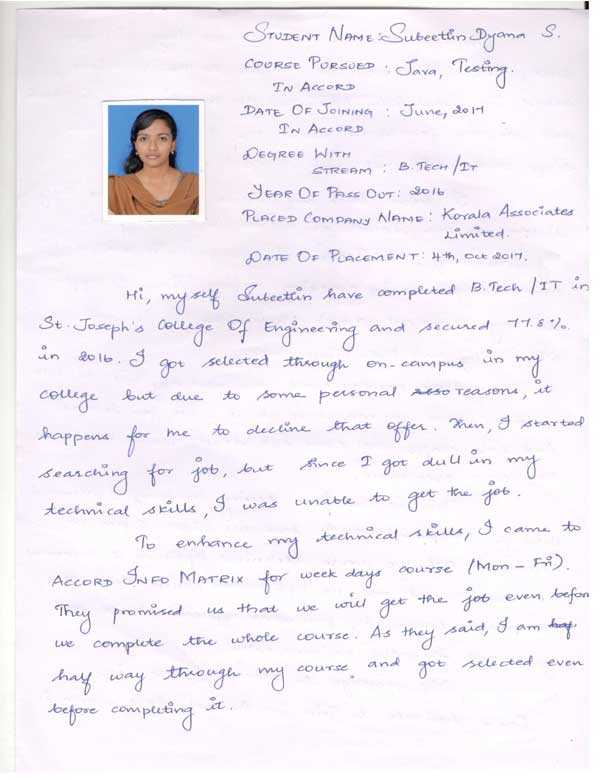 STUDENT NAME: Subeetlin Dyana S.
COURSE PURSUED : Java, Testing.
IN ACCORD
DATE OF JOINING : June, 2017
IN ACCORD
DEGREE WITH
STREAM : B.TECH/IT
YEAR OF PASS OUT: 2016
PLACED COMPANY NAME: Kovala Associates
Limited.
DATE OF PLACEMENT: 4th, Oct 2017.
Hi, myself Subeetlin have completed B.Tech/IT in
St. Joseph's College Of Engineering and secured 77.8%.
in 2016. I got selected through on-campus in my
college but due to some personal reasons, it
happens for me to decline that offer. Then, I started
searching for job, but since I got dull in my
technical skills, I was unable to get the job.
To enhance my technical skills, I came to
ACCORD INFO MATRIX for week days course (Mon - Fri).
They promised us that we will get the job even before
we complete the whole course. As they said, I am
half way through my course and got selected even
before completing it.